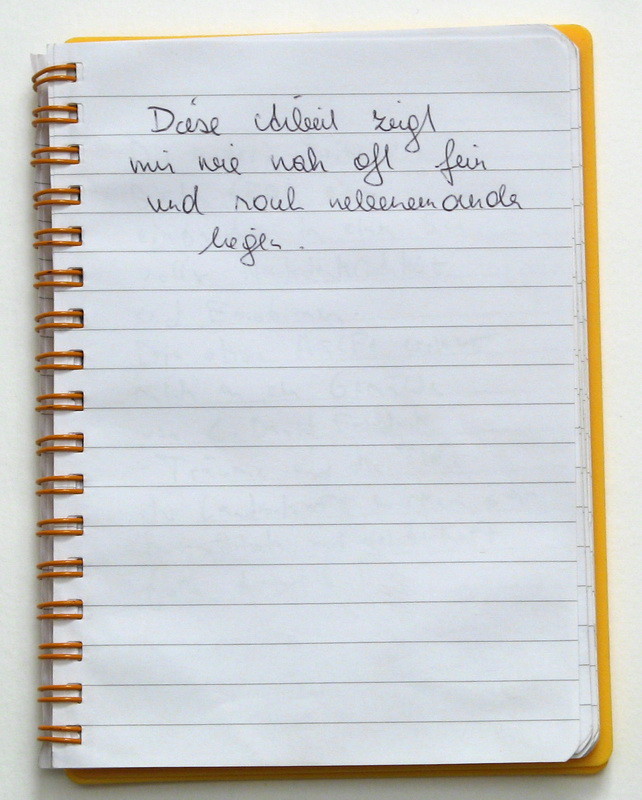 Diese Arbeit zeigt
mir wie nah oft fein
und rauh nebeneinander
liegen.